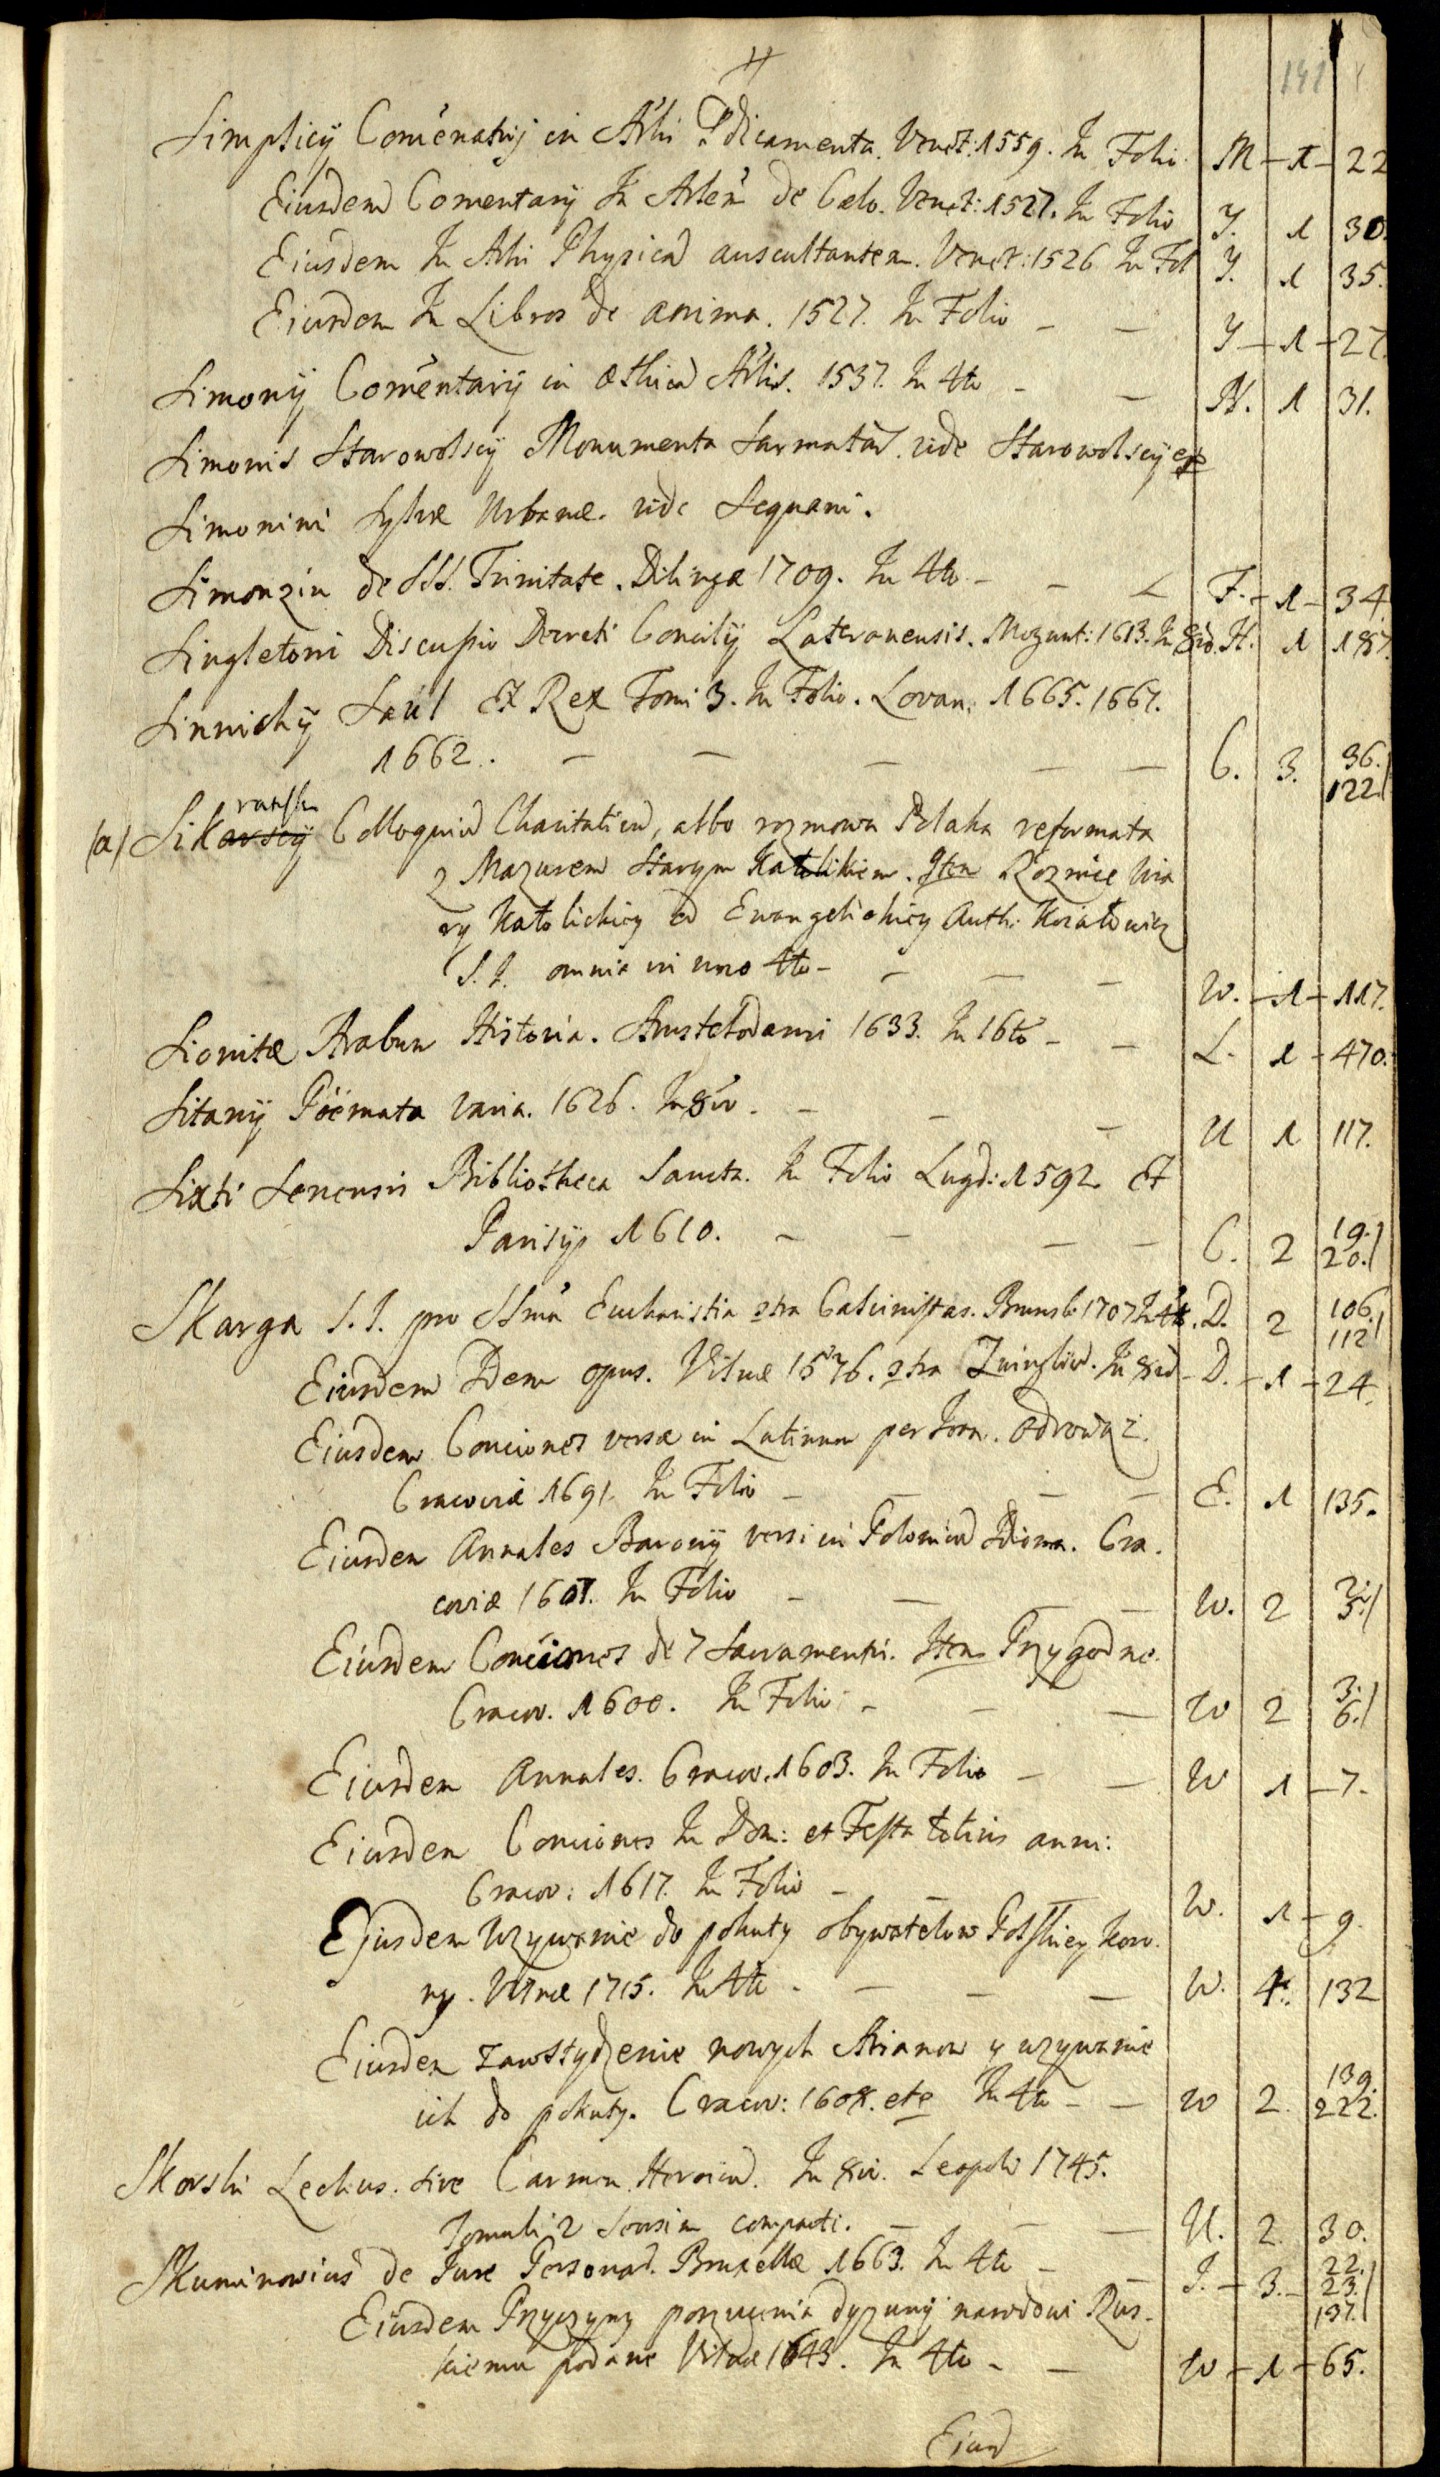 141
Simplicij Comẽnatarij in Arli Pdicamenta. Venet: 1559. In Folio. M - 1 - 22
Eiusdem Comentary In Arlem de Cælo. Venet: 1527. In Folio Y. 1 30.
Eiusdem In Arli Physicã auscultantem. Venet: 1526 In Fol Y. 1 35.
Eiusdem In Libros de anima. 1527. In Folio - - Y - 1 - 27.
Simonij Comẽntarij in æthicã Arlis. 1537. In 4to - - N. 1 31.
Simonis Starowolscij Monumenta Sarmatar. vide Starowolscij
Simonini Sylvæ Urbanæ. vide Sequani.
Simonzin de SSS. Trinitate. Dilingæ 1709. In 4to - - F. - 1 - 34.
Singletoni Discussio Decreti Concilij Lateranensis. Mogunt: 1613. In 8vo. H. 1 187.
Sinnichij Saul Ex Rex Tomi 3. In Folio. Lovan: 1665. 1667.
1662. - - - - - C. 3. 36. 122.
(a) Sikarscij ravski Colloquiũ Charitativũ, albo rozmowa Polaka reformata
z Mazurem Starym Katolikiem. Item Roznice Wia
ry Katolickiey od Ewangelickiey Auth: Kwiatkiewicz
S. J. omnia in uno 4to - - - - W. - 1 - 117.
Sionitæ Arabum Historia. Amstelodami 1633. In 16to - - L. 1 - 470.
Sitanij Poëmata varia. 1626. In 8vo. - - - U 1 117.
Sixti Senensis Bibliotheca Sancta. In Folio Lugd: 1592. Et
Parisijs 1610. - - - - C. 2 19. 20.
Skarga S. J. pro SSmã Eucharistia 9tra Calvinistas. Brunsb: 1707 In 4to. D. 2 106. 112
Eiusdem Idem opus. Vilnæ 1576. 9tra Zwingliũ. In 8vo - D. - 1 - 24.
Eiusdem Conciones versæ in Latinum per Joan. Odrowąz.
Cracoviæ 1691. In Folio - - - - E. 1 135.
Eiusdem Annales Baronij versi in Polonicũ Idioma. Cra.
coviæ 1607. In Folio - - - - W. 2 2. 5.
Eiusdem Conciones de 7 Sacramentis. Item Przygodne.
Cracov. 1600. In Folio - - - W 2 3. 6.
Eiusdem Annales. Cracov. 1603. In Folio - - W 1 - 7.
Eiusdem Conciones In Dom: et Festa totius anni:
Cracov: 1617. In Folio - - - W. 1 - 9.
Ejusdem Wzywanie do pokuty obywatelow Polskiey Koro.
ny. Vilnæ 1715. In 4to - - - - W. 4. 132
Eiusdem Zawstydzenie nowych Arianow y wzywanie
ich do pokuty. Cracov: 1608. etc In 4to - - W 2. 139. 222.
Skorski Lechus. sive Carmen Heroicũ. In 8vo. Leopoli 1745.
Tomuli 2 seorsim compacti. - - - U. 2. 30.
Skuminowius de Jure Personar. Bruxellæ 1663. In 4to - - J. - 3. - 22. 23. 137.
Eiusdem Przyczyny porzucenia dyzuniy narodowi Rus.
kiemu podane Vilnæ 1643. In 4to - - W - 1 - 65.
Eiusd